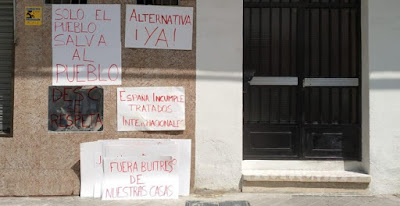 SOLO EL
PUEBLO
SALVA
AL
PUEBLO
ALTERNATIVA
¡YA!
ESPAÑA INCUMPLE
TRATADOS
INTERNACIONALES
FUERA BUITRES
DE
NUESTRAS CASAS